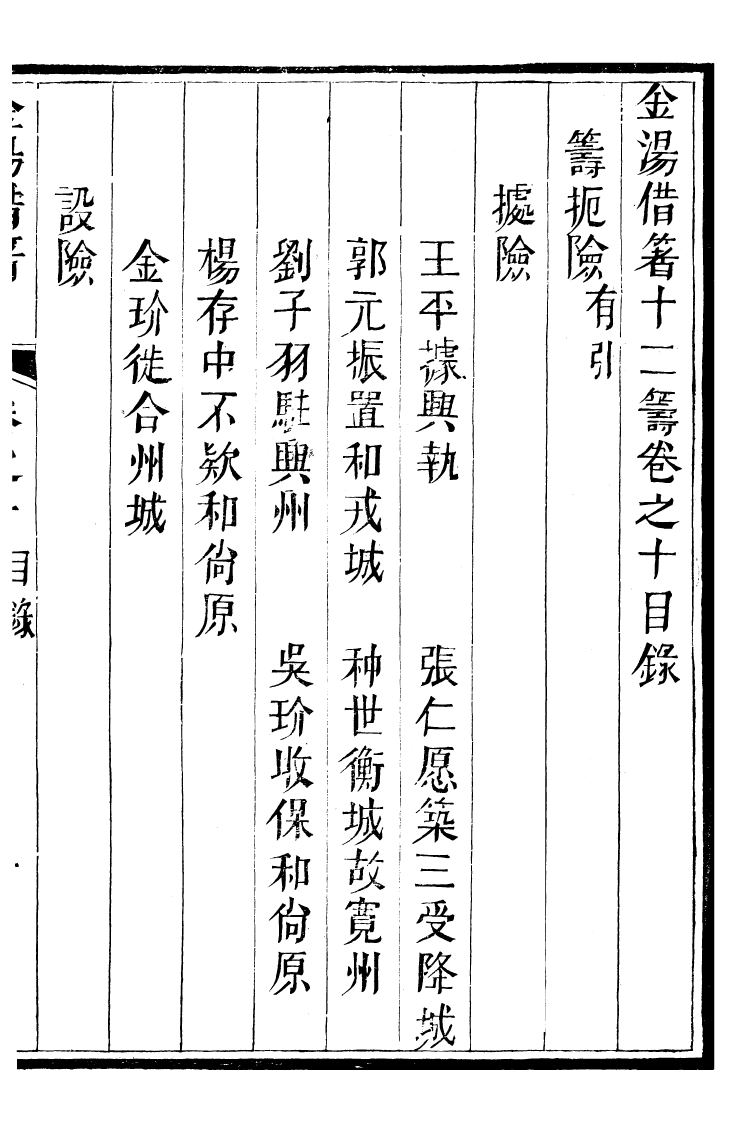 金湯借箸十二籌卷之十目錄
籌扼險有引
據險
王平據興執　張仁愿築三受降城
郭元振置和戎城　种世衡城故寬州
劉子羽駐興州　吳玠收保和尙原
楊存中不欵和尙原
金玠徙合州城
設險
金湯借箸　卷之十　目錄